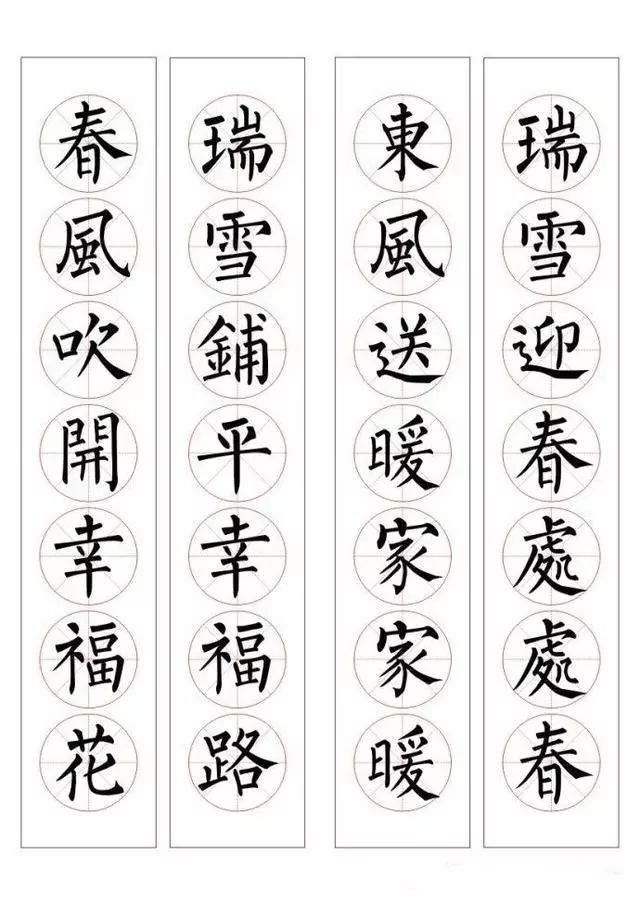 瑞雪迎春處處春
東風送暖家家暖
瑞雪鋪平幸福路
春風吹開幸福花